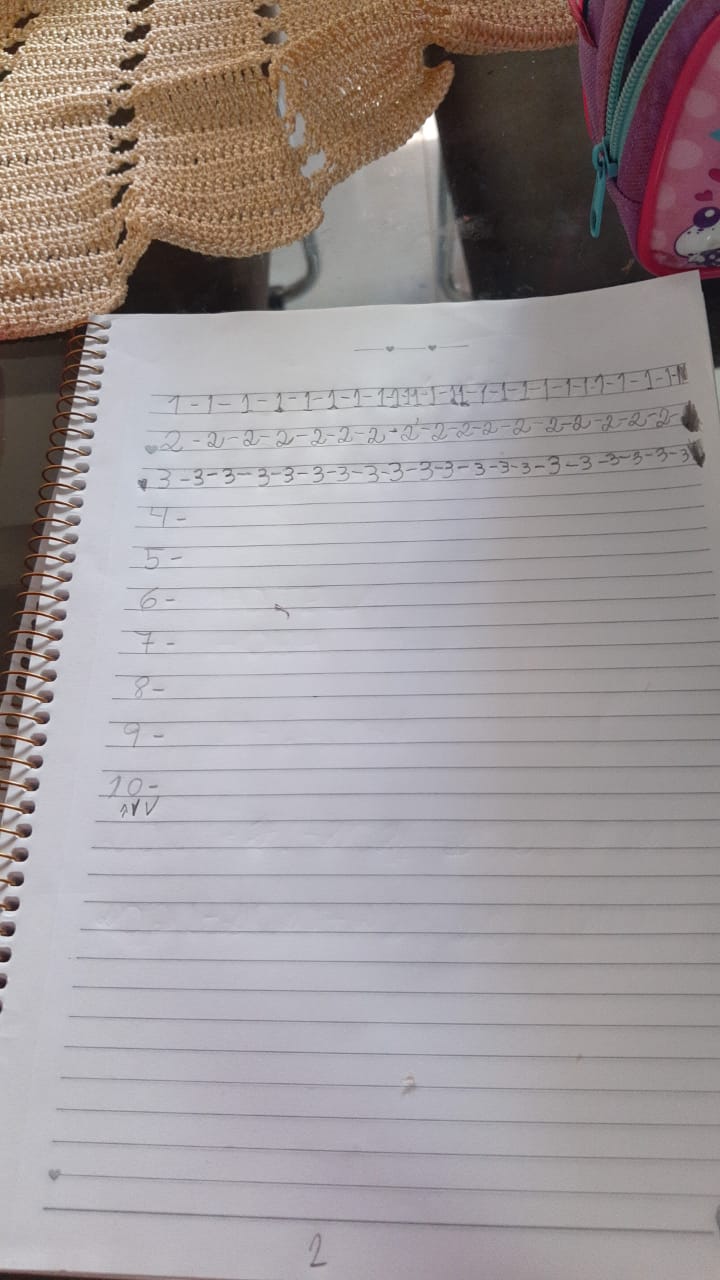 1-1-1-1-1-1-1-1-1-11-1-11-1-1-1-1-1-1-1-1-1-1
2-2-2-2-2-2-2-2-2-2-2-2-2-2-2-2-2-2
3-3-3-3-3-3-3-3-3-3-3-3-3-3-3-3-3-3-3-3
4-
5-
6-
7-
8-
9-
10-
2